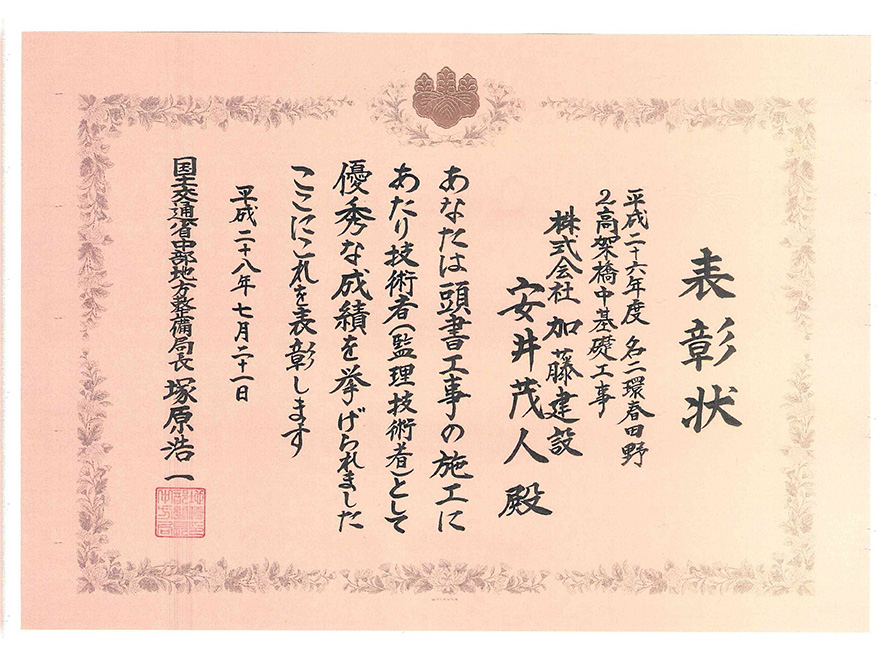 表彰状
平成二十六年度 名二環春田野
2高架橋中基礎工事
株式会社 加藤建設
安井茂人 殿
あなたは頭書工事の施工に
あたり技術者(監理技術者)として
優秀な成績を挙げられました
ここにこれを表彰します
平成二十八年七月二十一日
国土交通省中部地方整備局長 塚原浩一